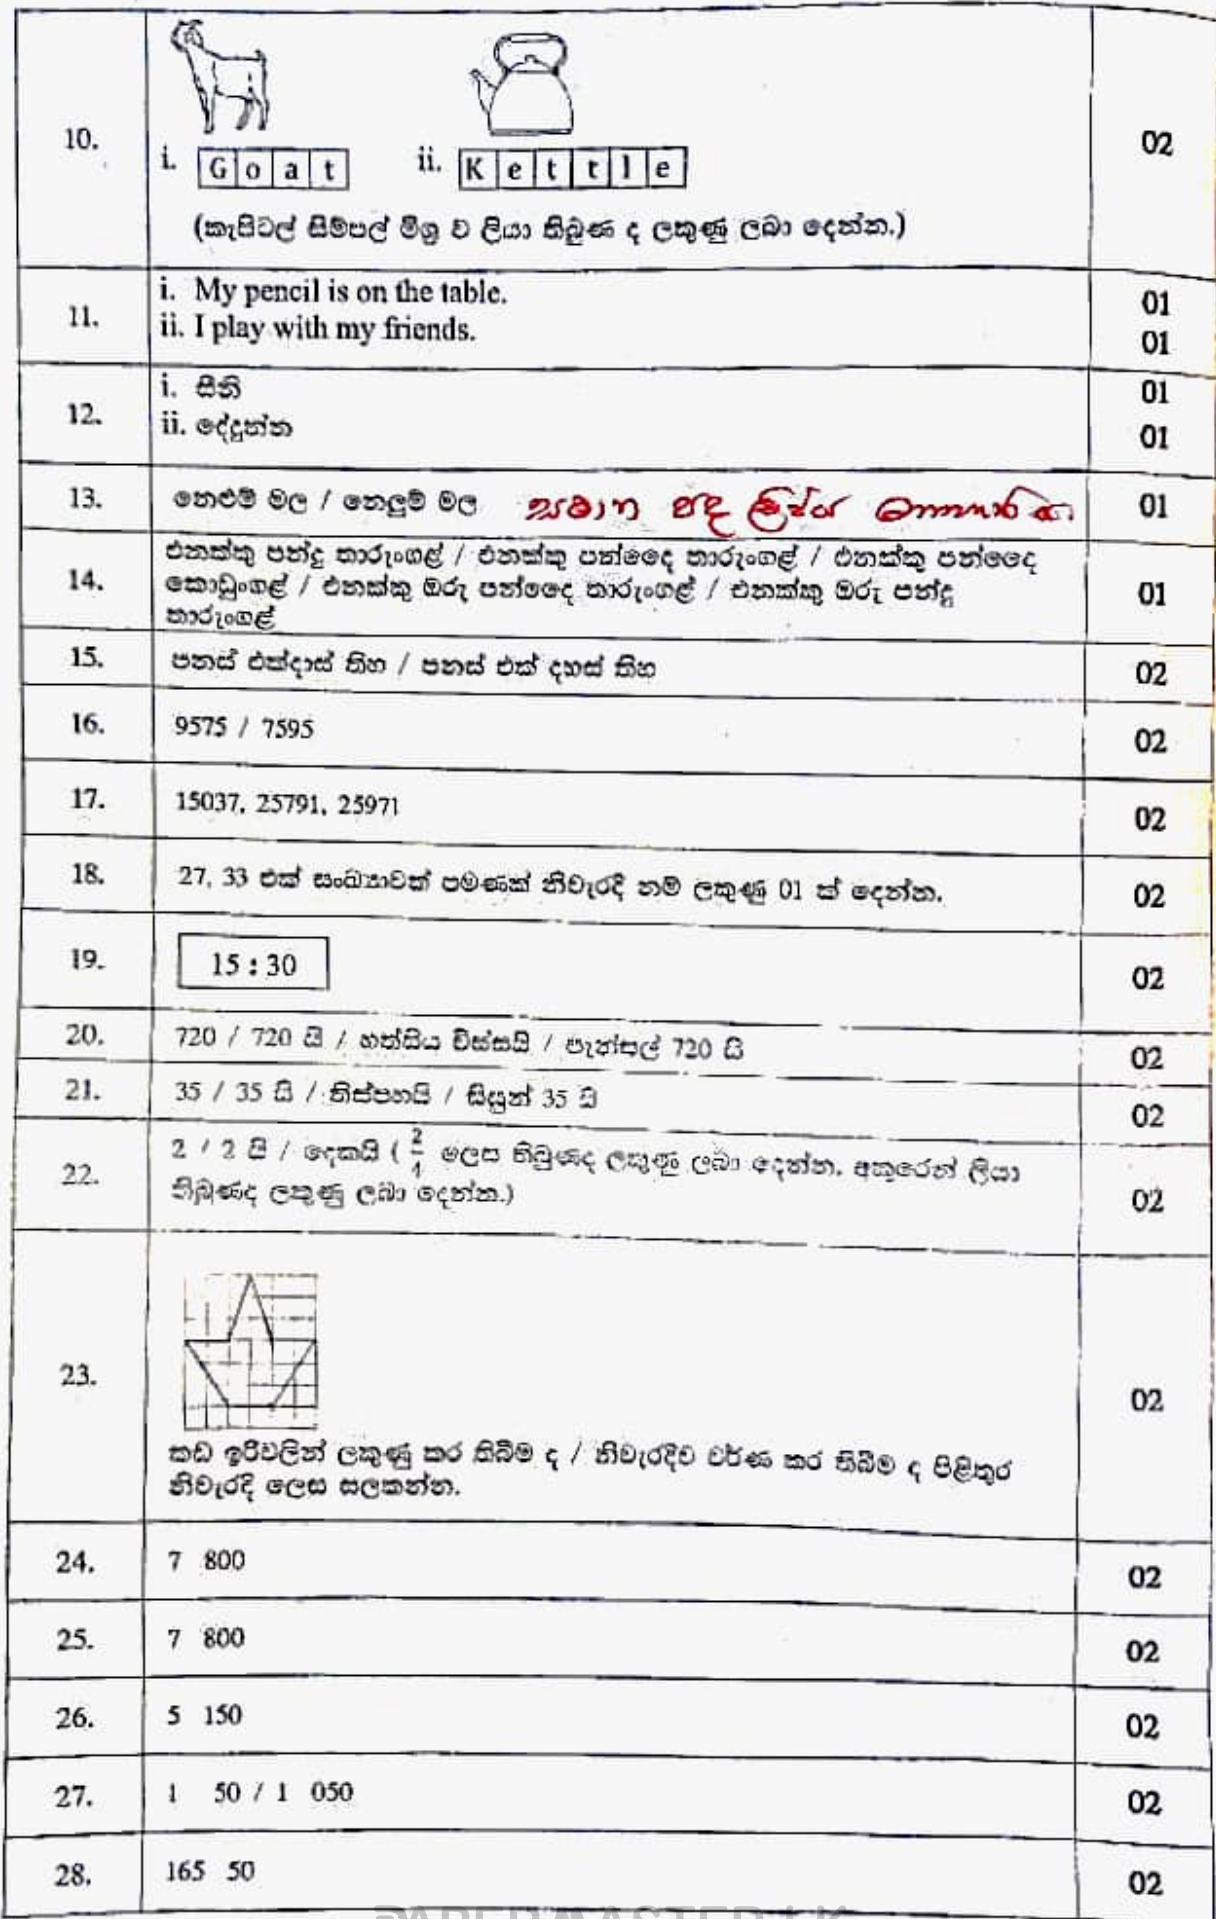 10.
i. Goat ii. Kettle
02
(කැපිටල් සිම්පල් මිශ්‍ර ව ලියා තිබුණ ද ලකුණු ලබා දෙන්න.)
11.
i. My pencil is on the table. 01
ii. I play with my friends. 01
12.
i. සීනි 01
ii. දේදුන්න 01
13. නෙළුම් මල / නෙලුම් මල 01
14.
එනක්කු පන්දු තාරුංගළ් / එනක්කු පන්දෛ තාරුංගළ් / එනක්කු පන්දෛ
කොඩුංගළ් / එනක්කු ඔරු පන්දෛ තාරුංගළ් / එනක්කු ඔරු පන්දු
තාරුංගළ්
01
15. පනස් එක්දාස් තිහ / පනස් එක් දහස් තිහ 02
16. 9575 / 7595 02
17. 15037, 25791, 25971 02
18. 27, 33 එක් සංඛ්‍යාවක් පමණක් නිවැරදි නම් ලකුණු 01 ක් දෙන්න. 02
19. 15 : 30 02
20. 720 / 720 යි / හත්සිය විස්සයි / පැන්සල් 720 යි 02
21. 35 / 35 යි / තිස්පහයි / සියුන් 35 යි 02
22.
2 / 2 යි / දෙකයි ( 2/4 ලෙස තිබුණද ලකුණු ලබා දෙන්න. අකුරෙන් ලියා
තිබුණද ලකුණු ලබා දෙන්න.)
02
23.
02
කඩ ඉරිවලින් ලකුණු කර තිබීම ද / නිවැරදිව වර්ණ කර තිබීම ද පිළිතුර
නිවැරදි ලෙස සලකන්න.
24. 7 800 02
25. 7 800 02
26. 5 150 02
27. 1 50 / 1 050 02
28. 165 50 02